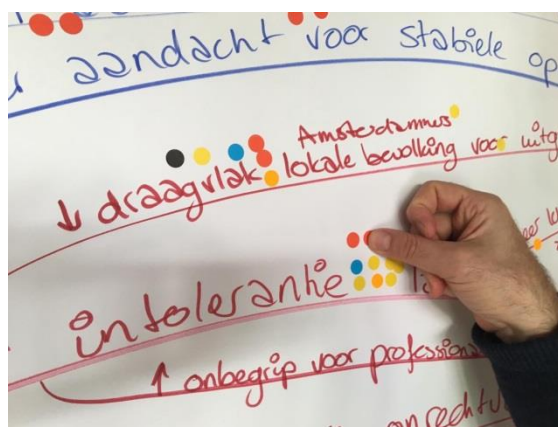 aandacht voor stabiele op
Amsterdammers
↓ draagvlak lokale bevolking voor uitg
intolerantie
↑ onbegrip voor profession